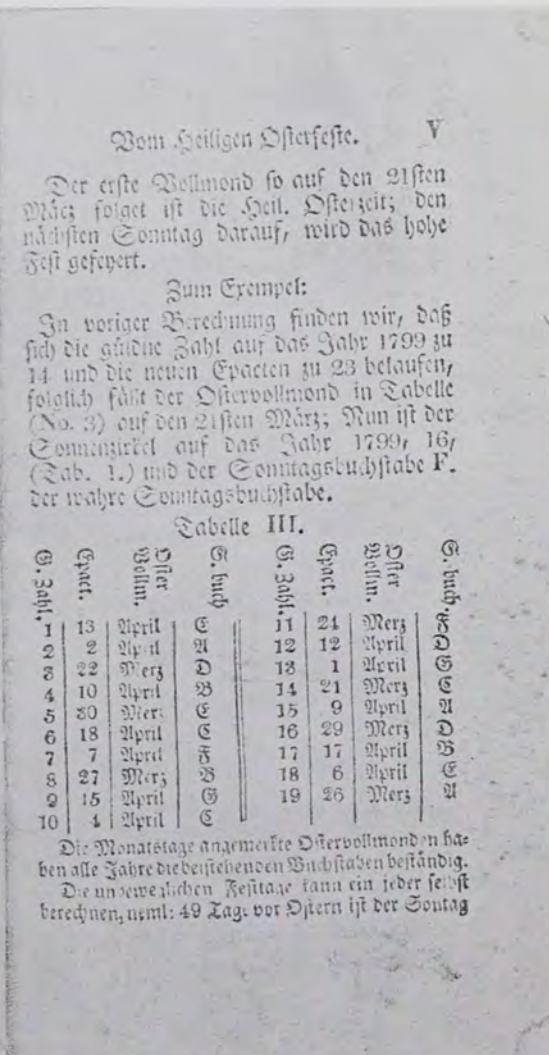 Vom Heiligen Osterfeste. V
Der erste Vollmond so auf den 21sten
März folget ist die Heil. Osterzeit; den
nächsten Sonntag darauf, wird das hohe
Fest gefeyert.
Zum Exempel:
In voriger Berechnung finden wir, daß
sich die güldne Zahl auf das Jahr 1799 zu
14 und die neuen Epacten zu 23 belaufen,
folglich fällt der Ostervollmond in Tabelle
(No. 3) auf den 21sten März; Nun ist der
Sonnenzirkel auf das Jahr 1799, 16,
(Tab. 1.) und der Sonntagsbuchstabe F.
der wahre Sonntagsbuchstabe.
Tabelle III.
G. Zahl. Epact. Oster Vollm. S. buch G. Zahl. Epact. Oster Vollm. S. buch
1 13 April E 11 24 Merz F
2 2 April A 12 12 April D
3 22 Merz D 13 1 April G
4 10 April B 14 21 Merz C
5 30 Merz E 15 9 April A
6 18 April C 16 29 Merz D
7 7 April F 17 17 April B
8 27 Merz B 18 6 April E
9 15 April G 19 26 Merz A
10 4 April C
Die Monatstage angemerkte Ostervollmonden ha-
ben alle Jahre die beistehenden Buchstaben beständig.
Die unbeweglichen Festtage kann ein jeder selbst
berechnen, neml: 49 Tage vor Ostern ist der Sontag